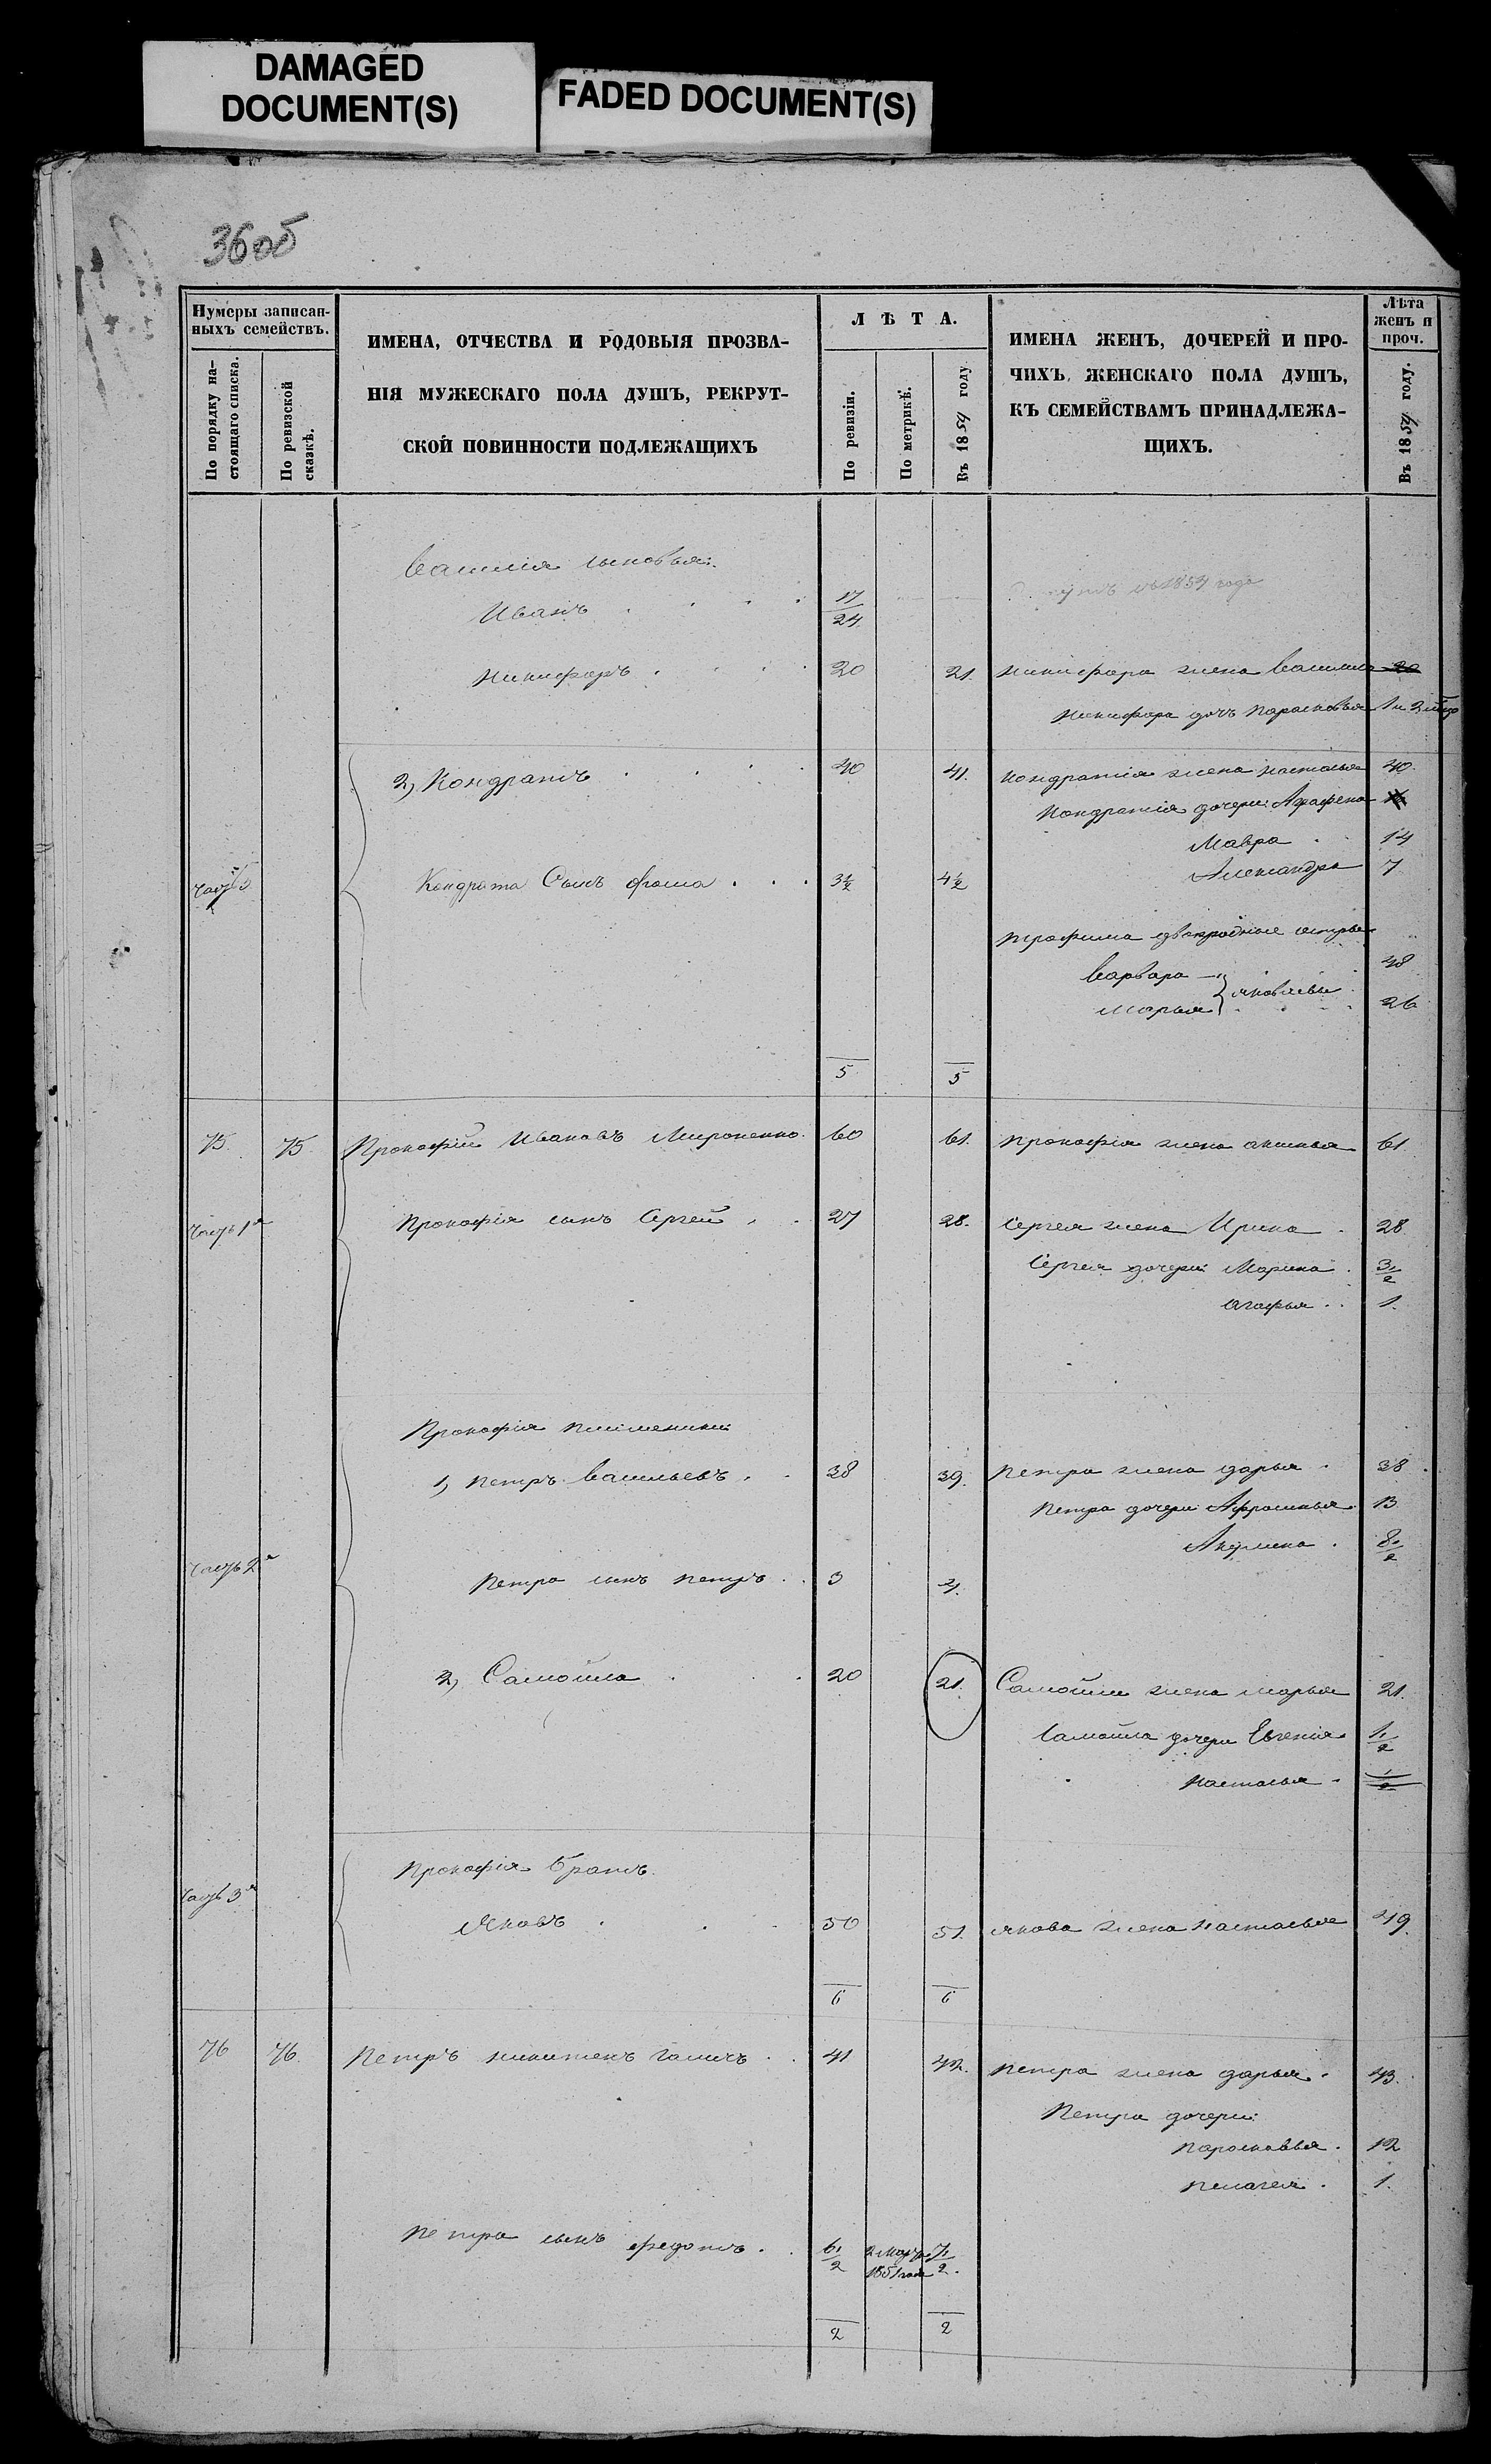 DAMAGED
DOCUMENT(S)
FADED DOCUMENT(S)
36об
Нумеры записан-
ныхъ семействъ.
По порядку на-
стоящаго списка.
По ревизской
сказкѣ.
ИМЕНА, ОТЧЕСТВА И РОДОВЫЯ ПРОЗВА-
НІЯ МУЖЕСКАГО ПОЛА ДУШЪ, РЕКРУТ-
СКОЙ ПОВИННОСТИ ПОДЛЕЖАЩИХЪ
ЛѢТА.
По ревизіи.
По метрикѣ.
Въ 1859 году
ИМЕНА ЖЕНЪ, ДОЧЕРЕЙ И ПРО-
ЧИХЪ ЖЕНСКАГО ПОЛА ДУШЪ,
КЪ СЕМЕЙСТВАМЪ ПРИНАДЛЕЖА-
ЩИХЪ.
Лѣта
женъ и
проч.
Въ 1859 году.
Василія сыновья:
Иванъ . . . . 17/24
года
Никифоръ . . . . 20 21. Никифора жена 20
Никифора дочь Парасковья 1
2, Кондратъ . . . . 40 41. Кондратія жена Настасья 40.
Кондратія дочери: Аграфена
Мавра . 14
Александра 7
Часть 3
Кондрата Сынъ Фома . . . 3 1/2 4 1/2
Трофима двоюродные сестры
Варвара 48
Марья } Яковлевы 26
5 5
75. 75. Прокофій Ивановъ Мироненко. 60 61. Прокофія жена Аксинья 61
Часть 1я Прокофія сынъ Сергей . . 27 28. Сергея жена Ирина . 28
Сергея дочери: Марина . 3 1/2
Агафья . . 1.
Прокофія племенники:
1, Петръ Васильевъ . . 38 39. Петра жена Дарья . 38
Петра дочери: Афросинья 13
Акулина . 8 1/2
Часть 2я Петра сынъ Петръ . . 3 4.
2, Самойла . . 20 21. Самойлы жена Марья 21.
Самойла дочери Евгенія 1 1/2
Настасья . 1/2
Часть 3я Прокофія братъ
Яковъ . . . 50 51. Якова жена Настасья 49.
6 6
76 76. Петръ Никитенъ . . 41 42. Петра жена Дарья . 43.
Петра дочери:
Парасковья . 12
Пелагея . 1.
Петра сынъ Федотъ . . 6 1/2 2 Марта 1851 года 7 1/2.
2 2